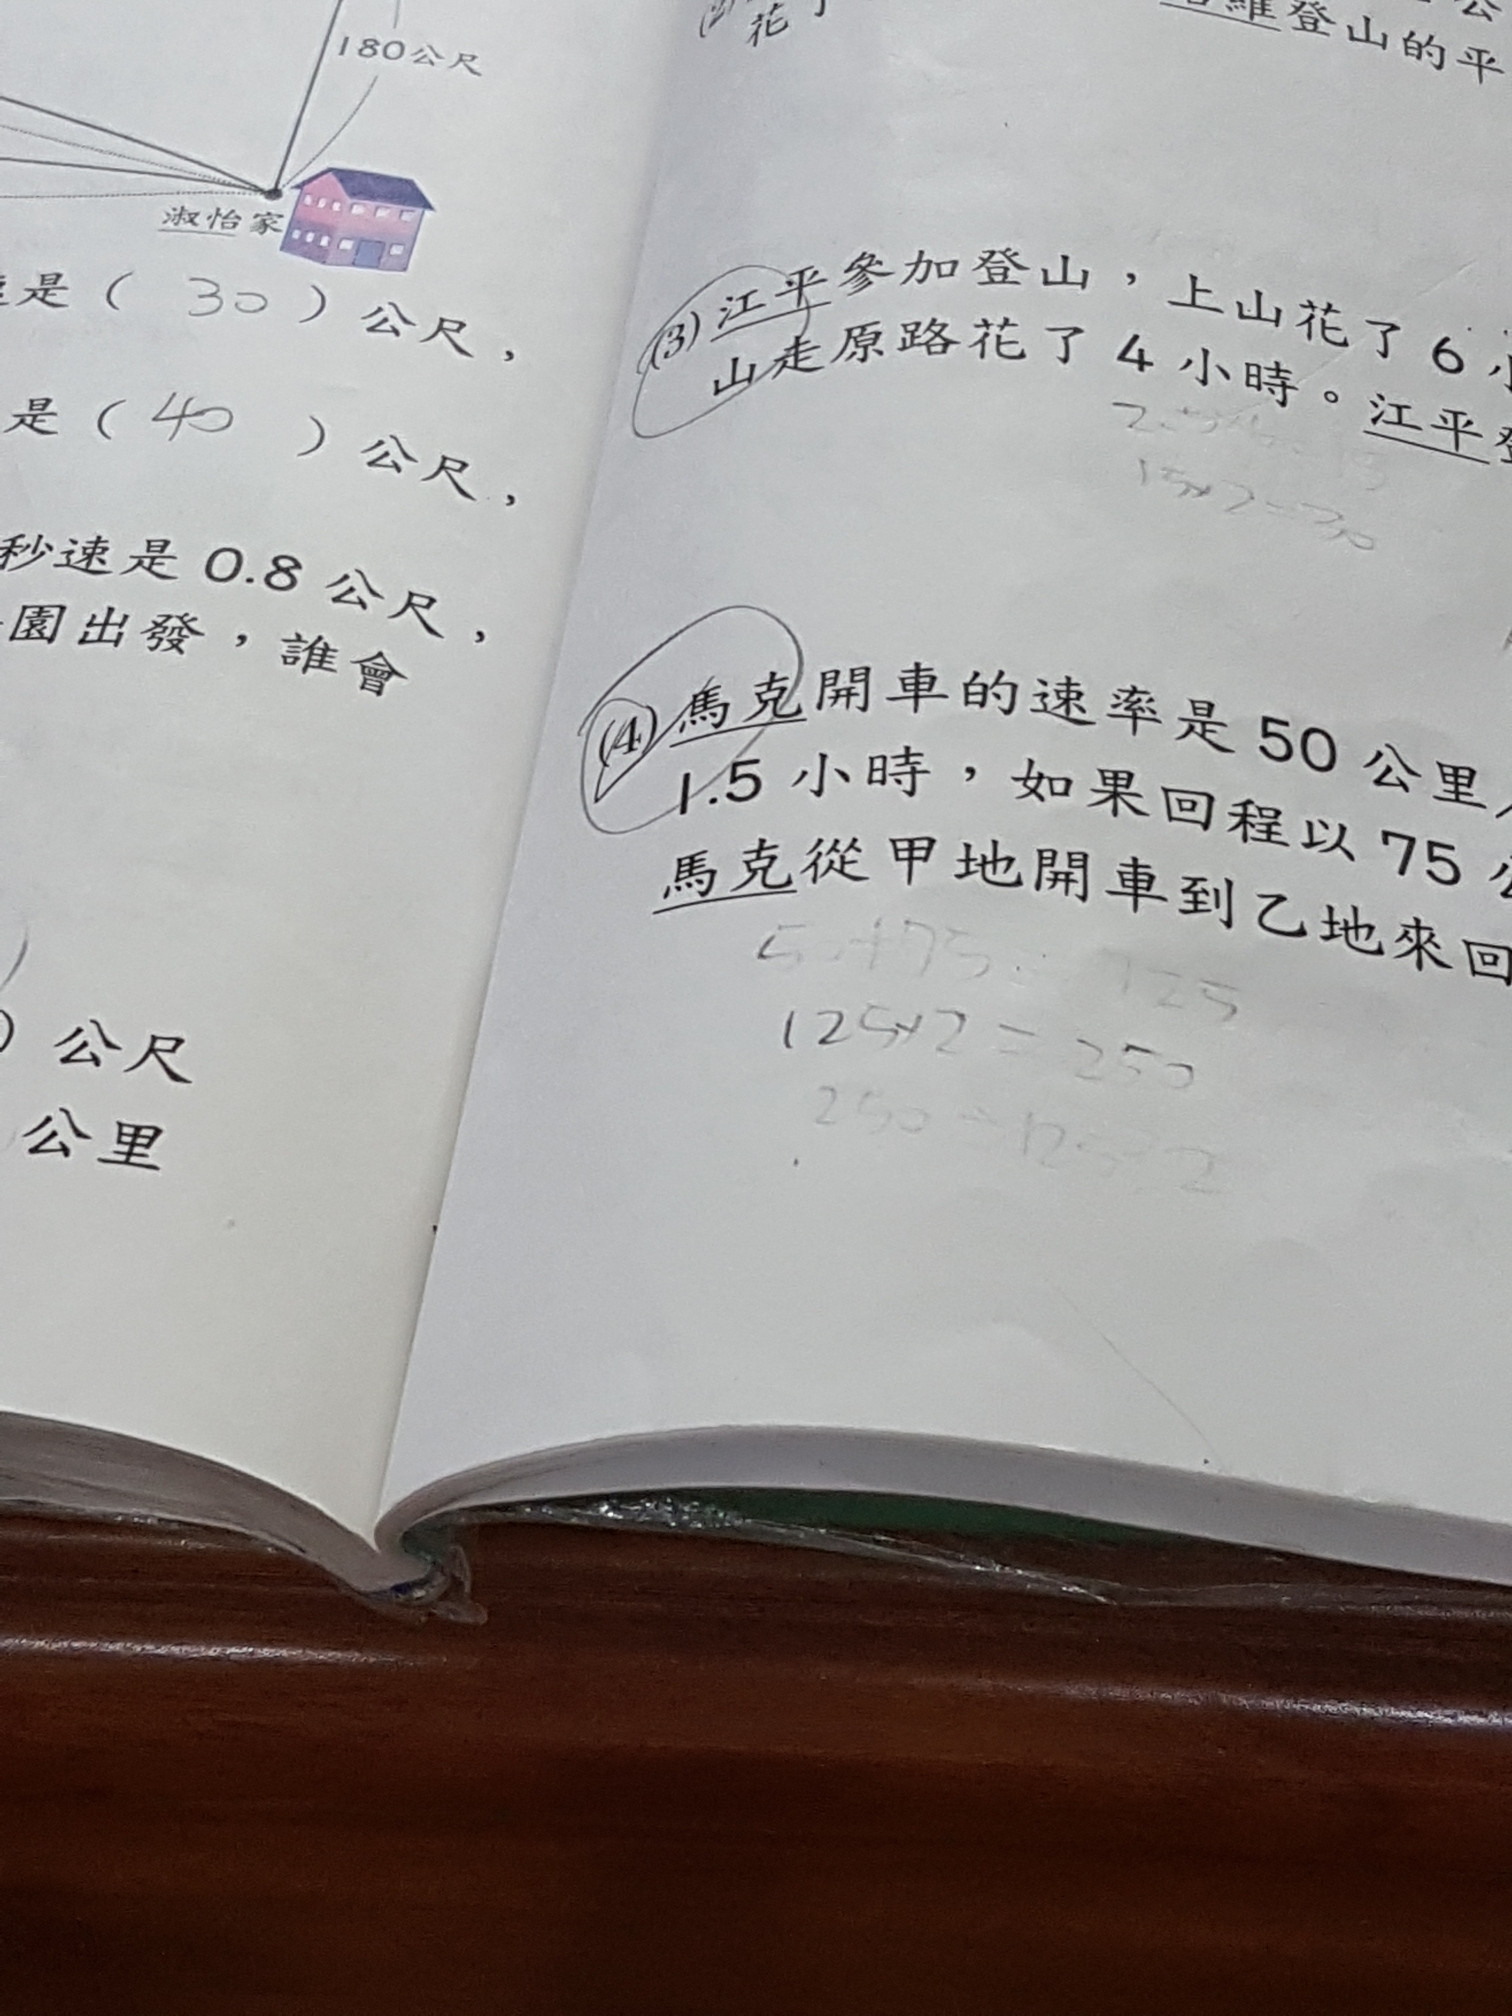 180公尺
淑怡家
是( 30 )公尺，
是( 40 )公尺，
秒速是 0.8 公尺，
園出發，誰會
)公尺
公里
花
登山的平
(3) 江平參加登山，上山花了 6 小
山走原路花了 4 小時。江平登
15×2=30
(4) 馬克開車的速率是 50 公里
1.5 小時，如果回程以 75 公
馬克從甲地開車到乙地來回
50+75=125
125×2=250
250÷125=2